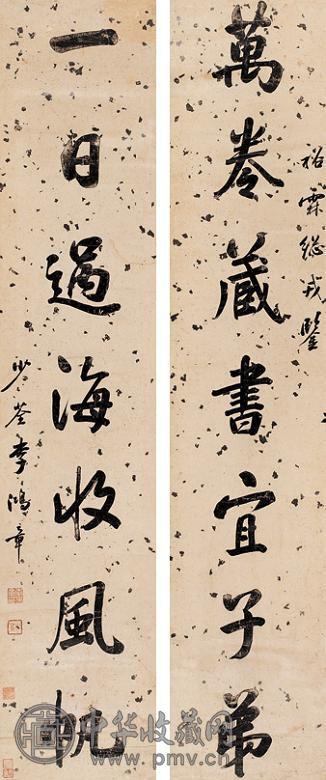 裕霖總戎鑒
萬卷藏書宜子弟
一日過海收風帆
少荃李鴻章
中华收藏网
www.pmv.cn